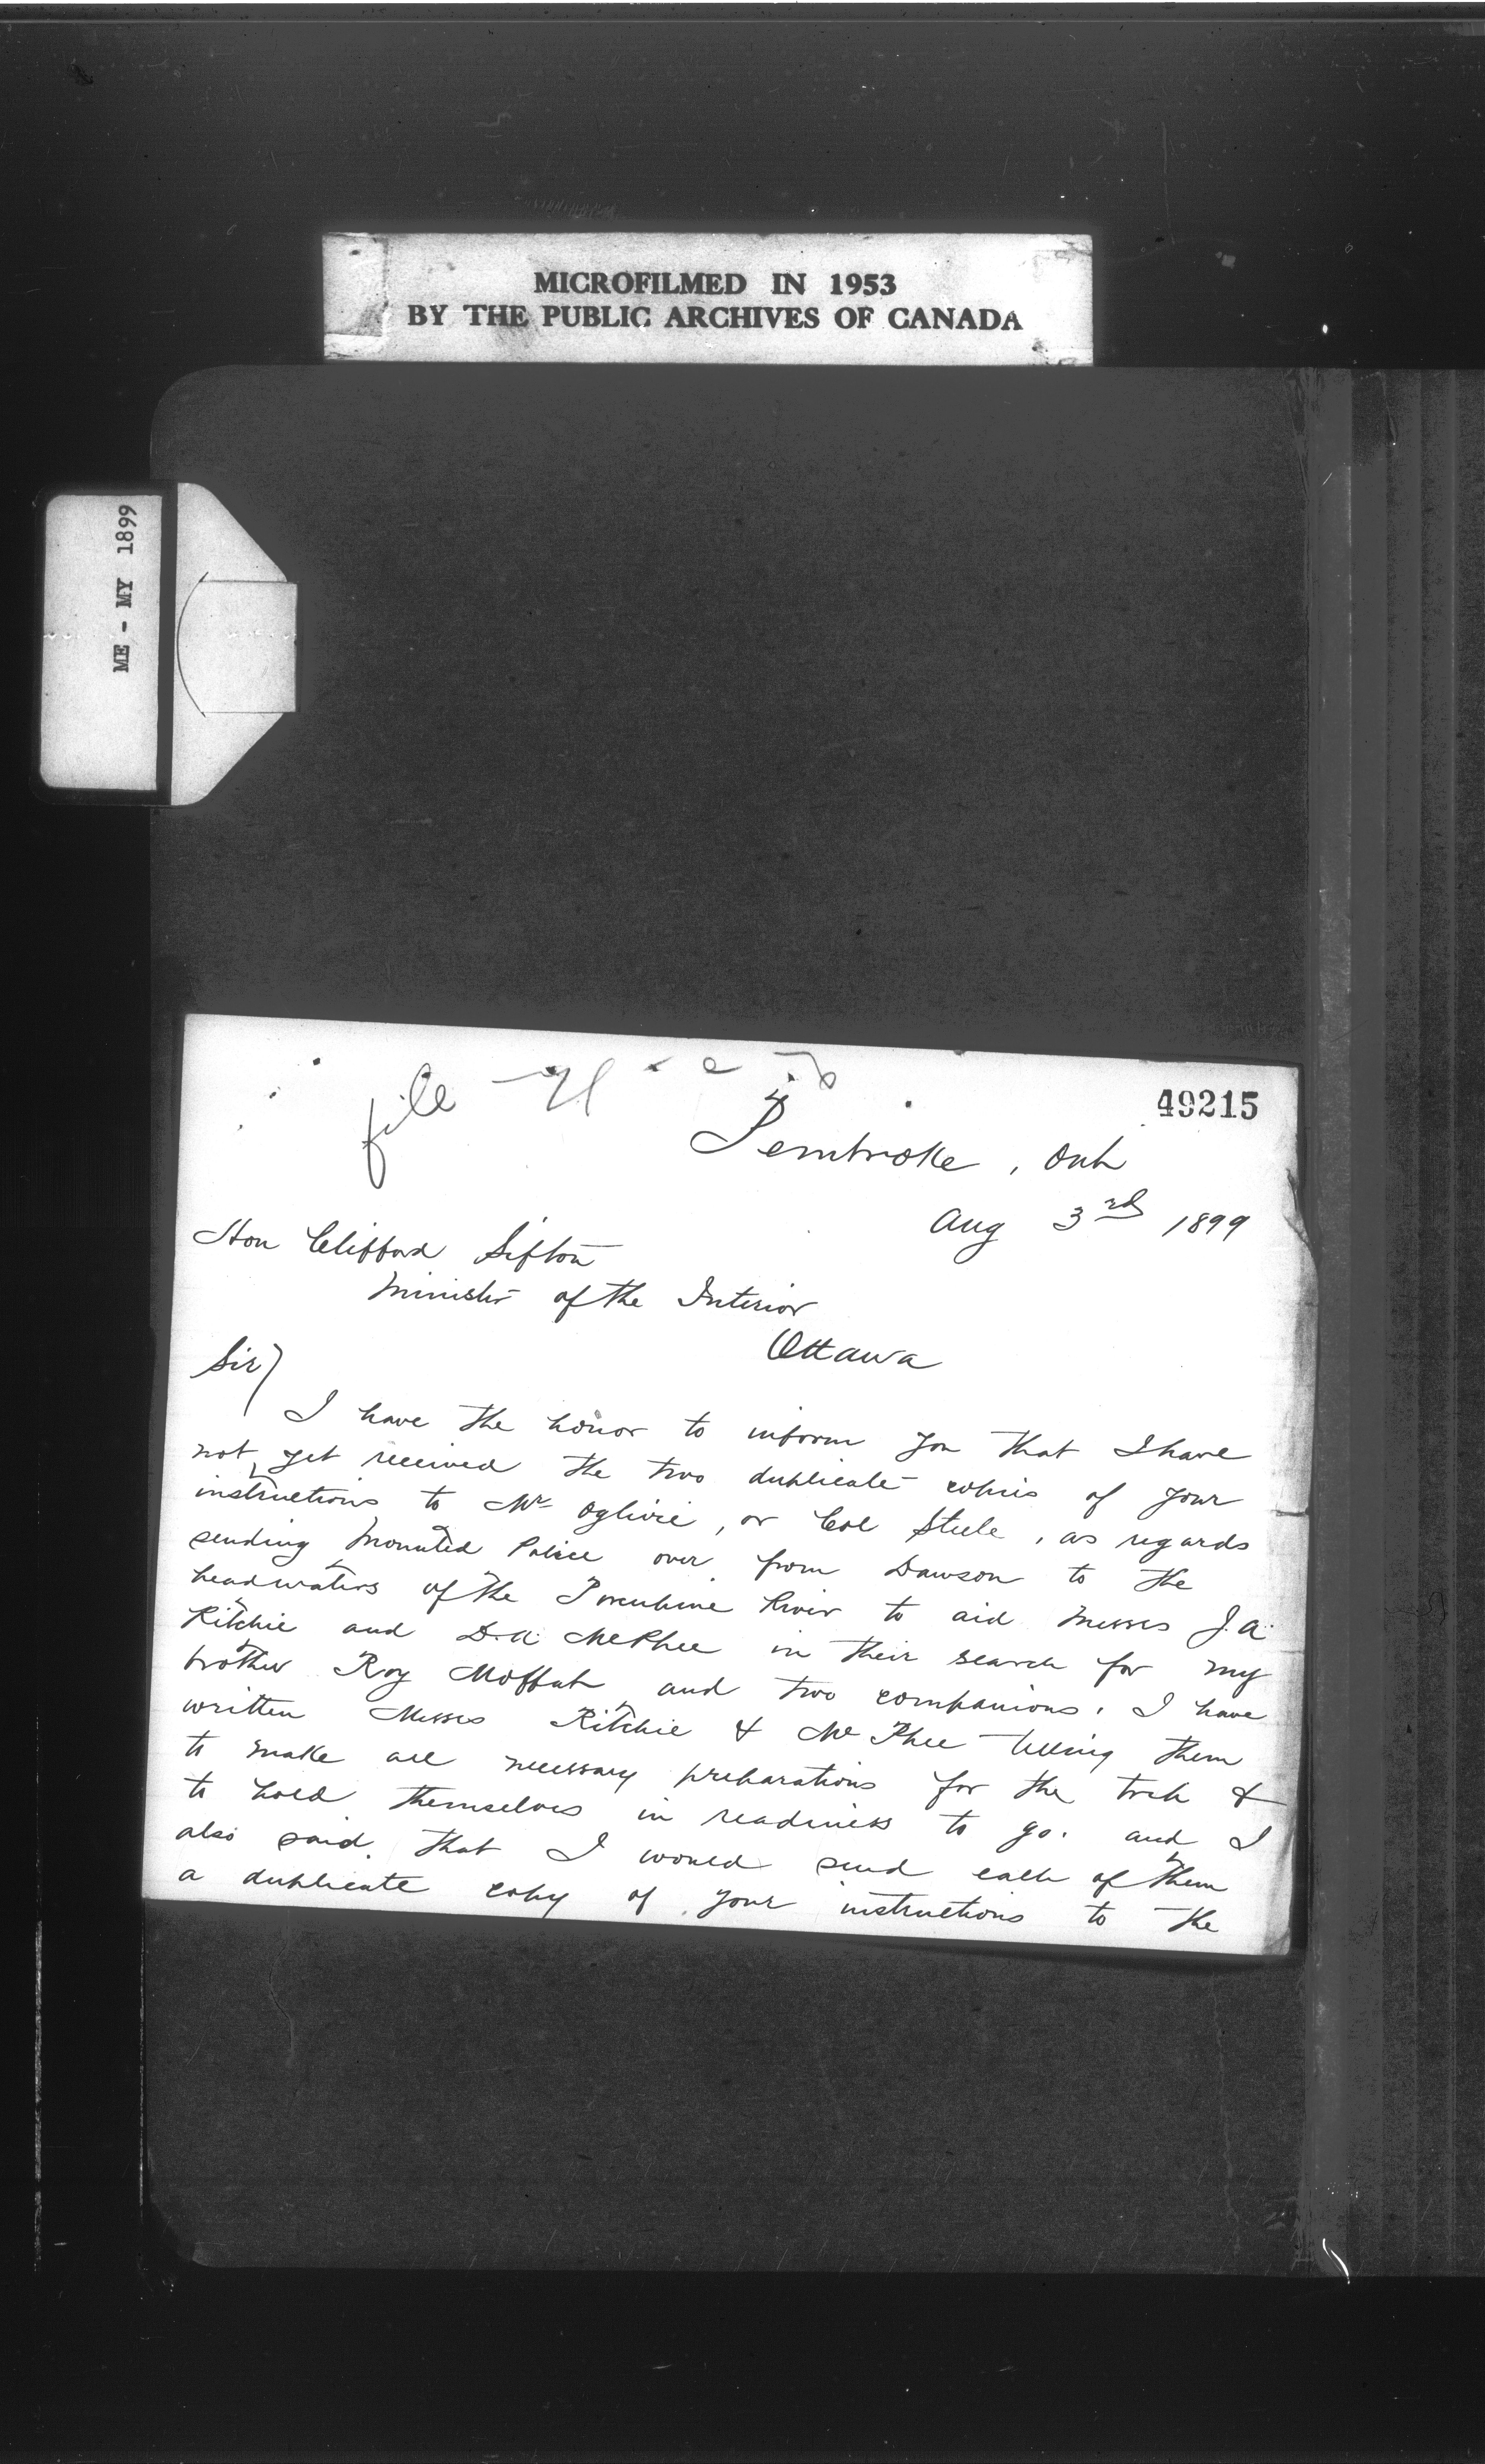 MICROFILMED IN 1953
BY THE PUBLIC ARCHIVES OF CANADA
ME - MY 1899
file
49215
Pembroke, Ont
Aug 3rd 1899
Hon Clifford Sifton
Minister of the Interior
Ottawa
Sir)
I have the honor to inform you that I have
not yet received the two duplicate copies of your
instructions to Mr Oglivie, or Col Steele, as regards
sending Mounted Police over from Dawson to the
headwaters of the Porcupine River to aid Messrs J.A.
Ritchie and D.A. McPhee in their search for my
brother Roy Moffat and two companions. I have
written Messrs Ritchie & McPhee telling them
to make all necessary preparations for the trek &
to hold themselves in readiness to go. and I
also said that I would send each of them
a duplicate copy of your instructions to the